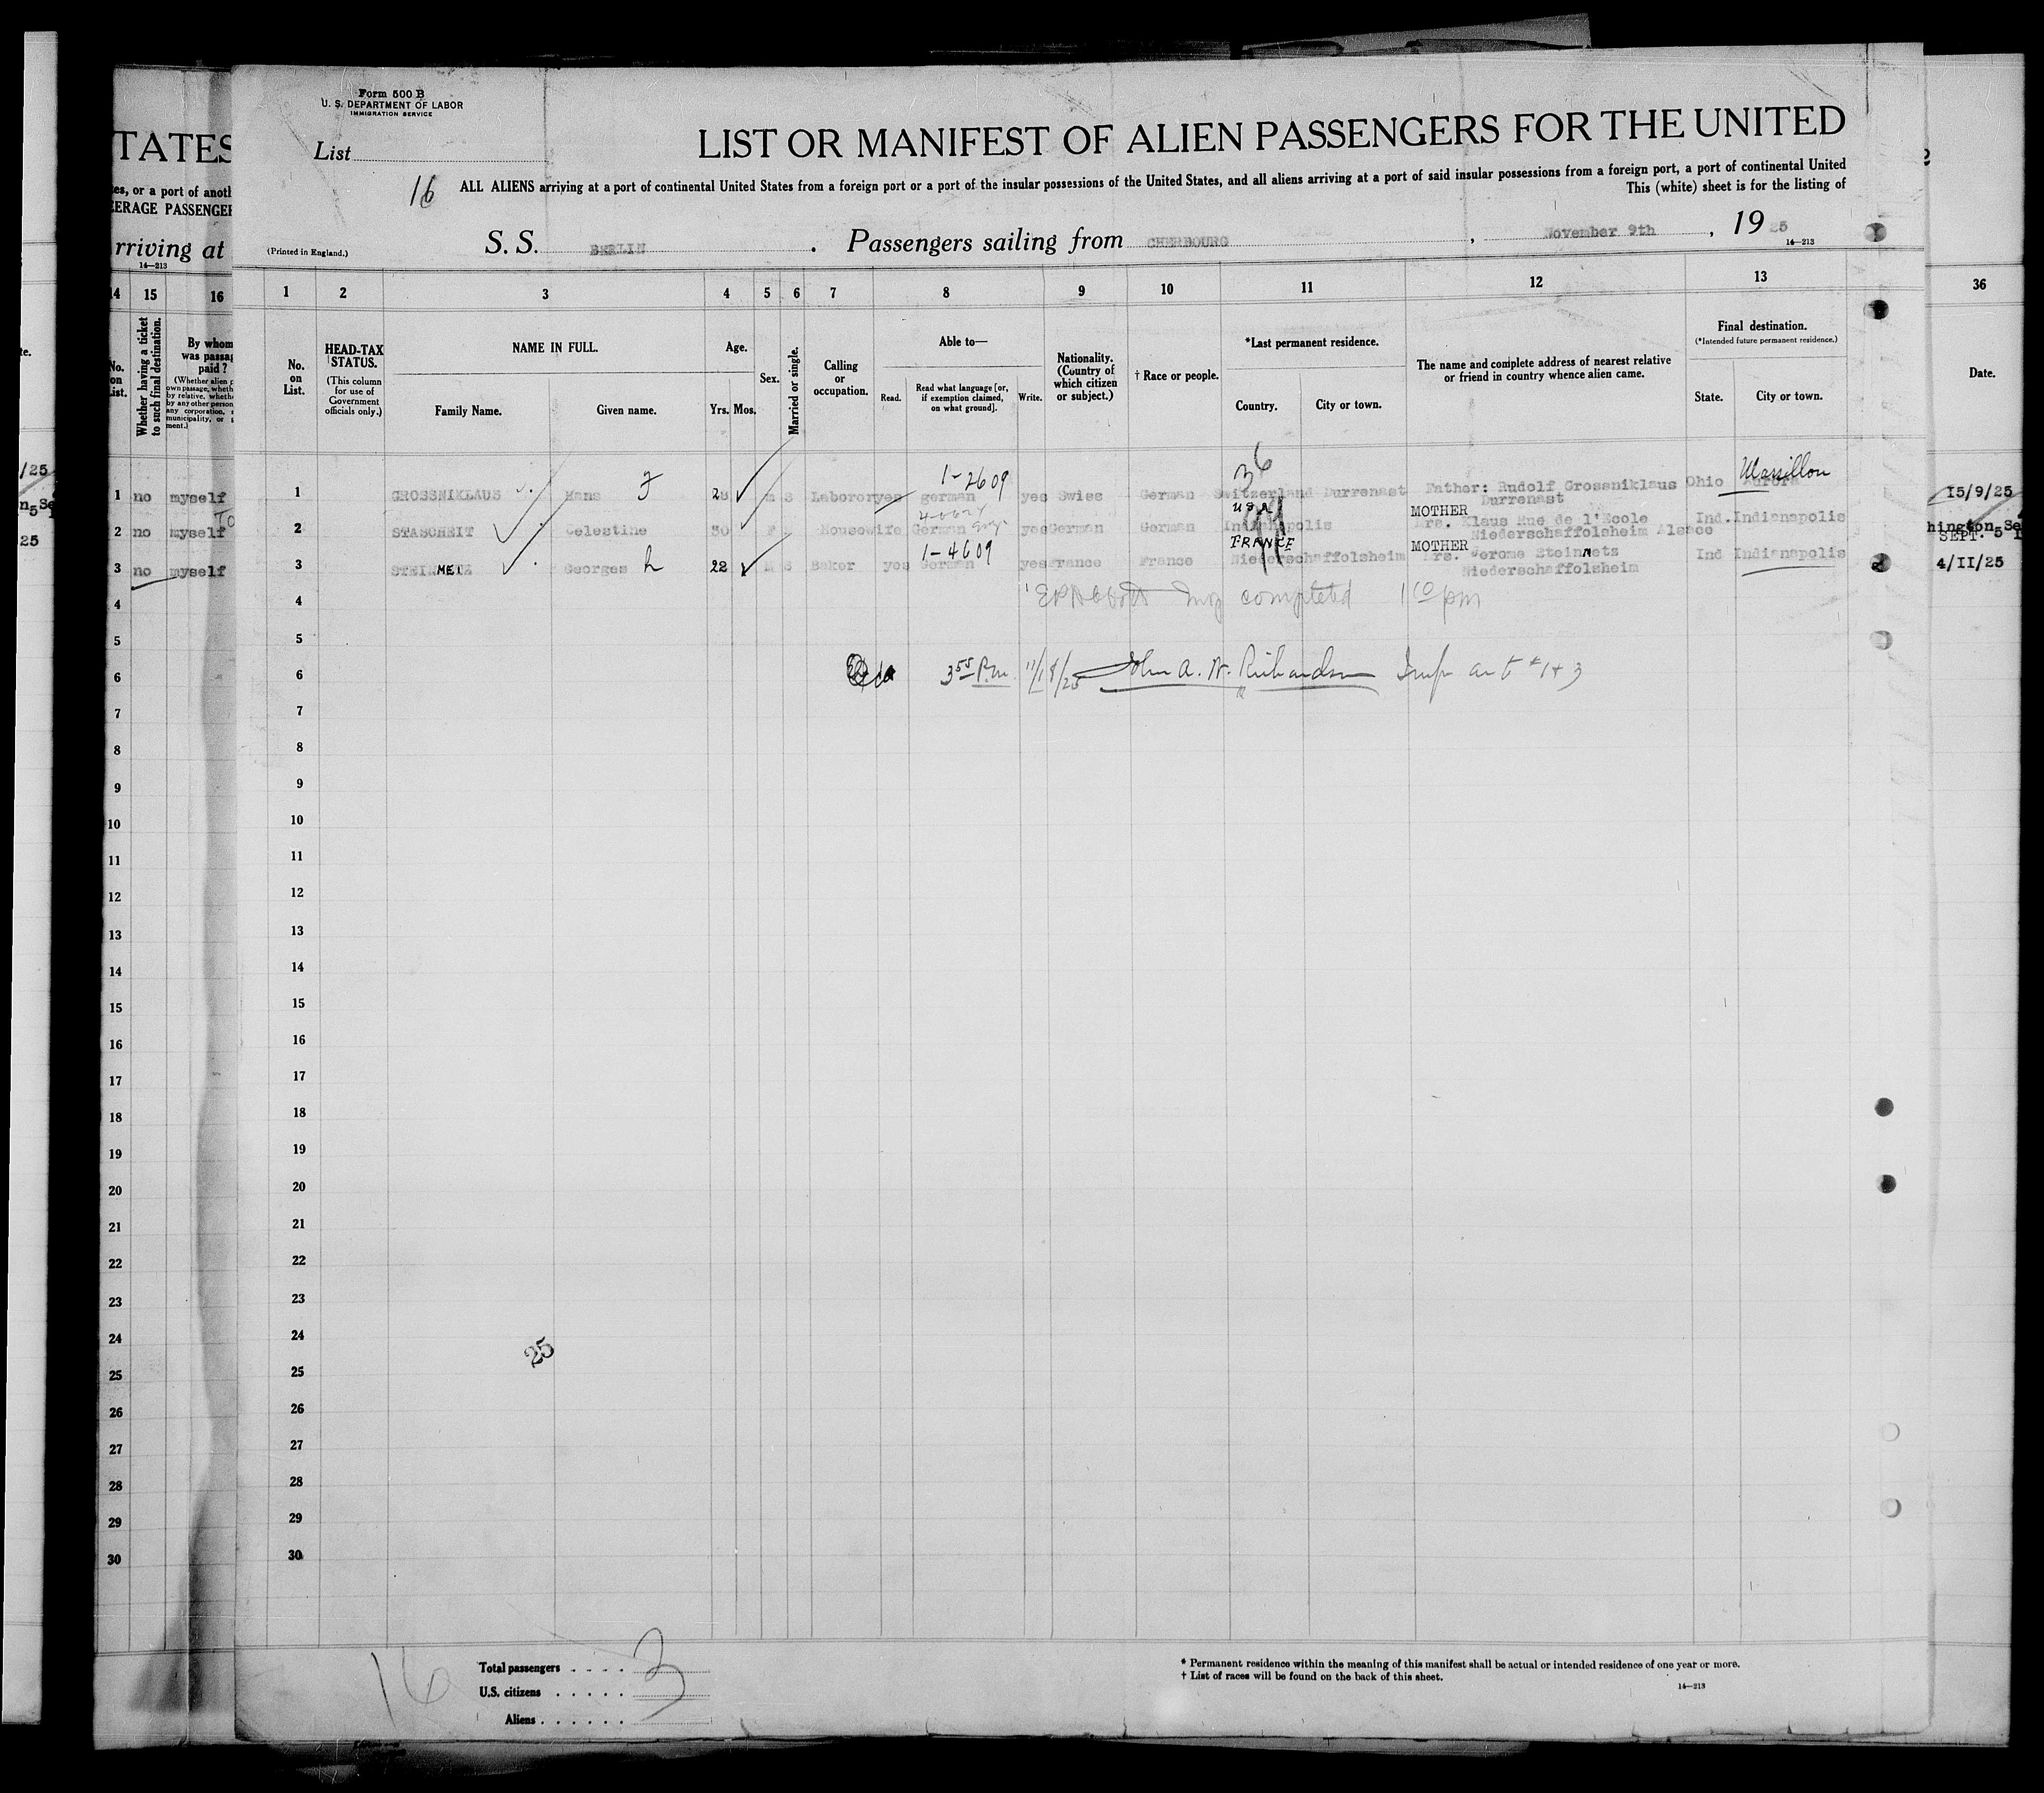 Form 500 B
U. S. DEPARTMENT OF LABOR
IMMIGRATION SERVICE
List
16
LIST OR MANIFEST OF ALIEN PASSENGERS FOR THE UNITED
ALL ALIENS arriving at a port of continental United States from a foreign port or a port of the insular possessions of the United States, and all aliens arriving at a port of said insular possessions from a foreign port, a port of continental United
This (white) sheet is for the listing of
(Printed in England.)
S. S. BERLIN . Passengers sailing from CHERBOURG , November 9th , 19 25
14—213
TATES
es, or a port of anoth
ERAGE PASSENGER
rriving at
14—213
14 15 16
No. on List.
Whether having a ticket to such final destination.
By whom was passag paid ?
1 no myself
2 no myself
3 no myself
1 2 3 4 5 6 7 8 9 10 11 12 13 36
No. on List.
HEAD-TAX STATUS.
(This column for use of Government officials only.)
NAME IN FULL.
Family Name. Given name.
Age.
Yrs. Mos.
Sex.
Married or single.
Calling or occupation.
Able to—
Read. Read what language [or, if exemption claimed, on what ground]. Write.
Nationality. (Country of which citizen or subject.)
† Race or people.
*Last permanent residence.
Country. City or town.
The name and complete address of nearest relative or friend in country whence alien came.
Final destination.
(*Intended future permanent residence.)
State. City or town.
Date.
1-2609 36 Massillon
1 GROSSNIKLAUS Hans 28 M S Laborer yes german yes Swiss German Switzerland Durrenast Father: Rudolf Grossniklaus Ohio
Durrenast
15/9/25
USA MOTHER
2 STASCHEIT Celestine 30 F Housewife German yes German German Indianapolis Mrs. Klaus Rue de l'Ecole Ind. Indianapolis
Niederschaffolsheim Alsace
SEPT. 5
1-4609 FRANCE MOTHER
3 STEINMETZ Georges 22 M S Baker yes German yes France France Niederschaffolsheim Mrs. Jerome Steinmetz Ind Indianapolis
Niederschaffolsheim
4/II/25
4 completed 1 10 pm
5
6 3 55 P.M. 11/18/25 John A. W. Richardson Insp #1+3
7
8
9
10
11
12
13
14
15
16
17
18
19
20
21
22
23
24
25
25
26
27
28
29
30
16
Total passengers . . . . 3
U.S. citizens . . . . .
Aliens . . . . . .
* Permanent residence within the meaning of this manifest shall be actual or intended residence of one year or more.
† List of races will be found on the back of this sheet.
14—213